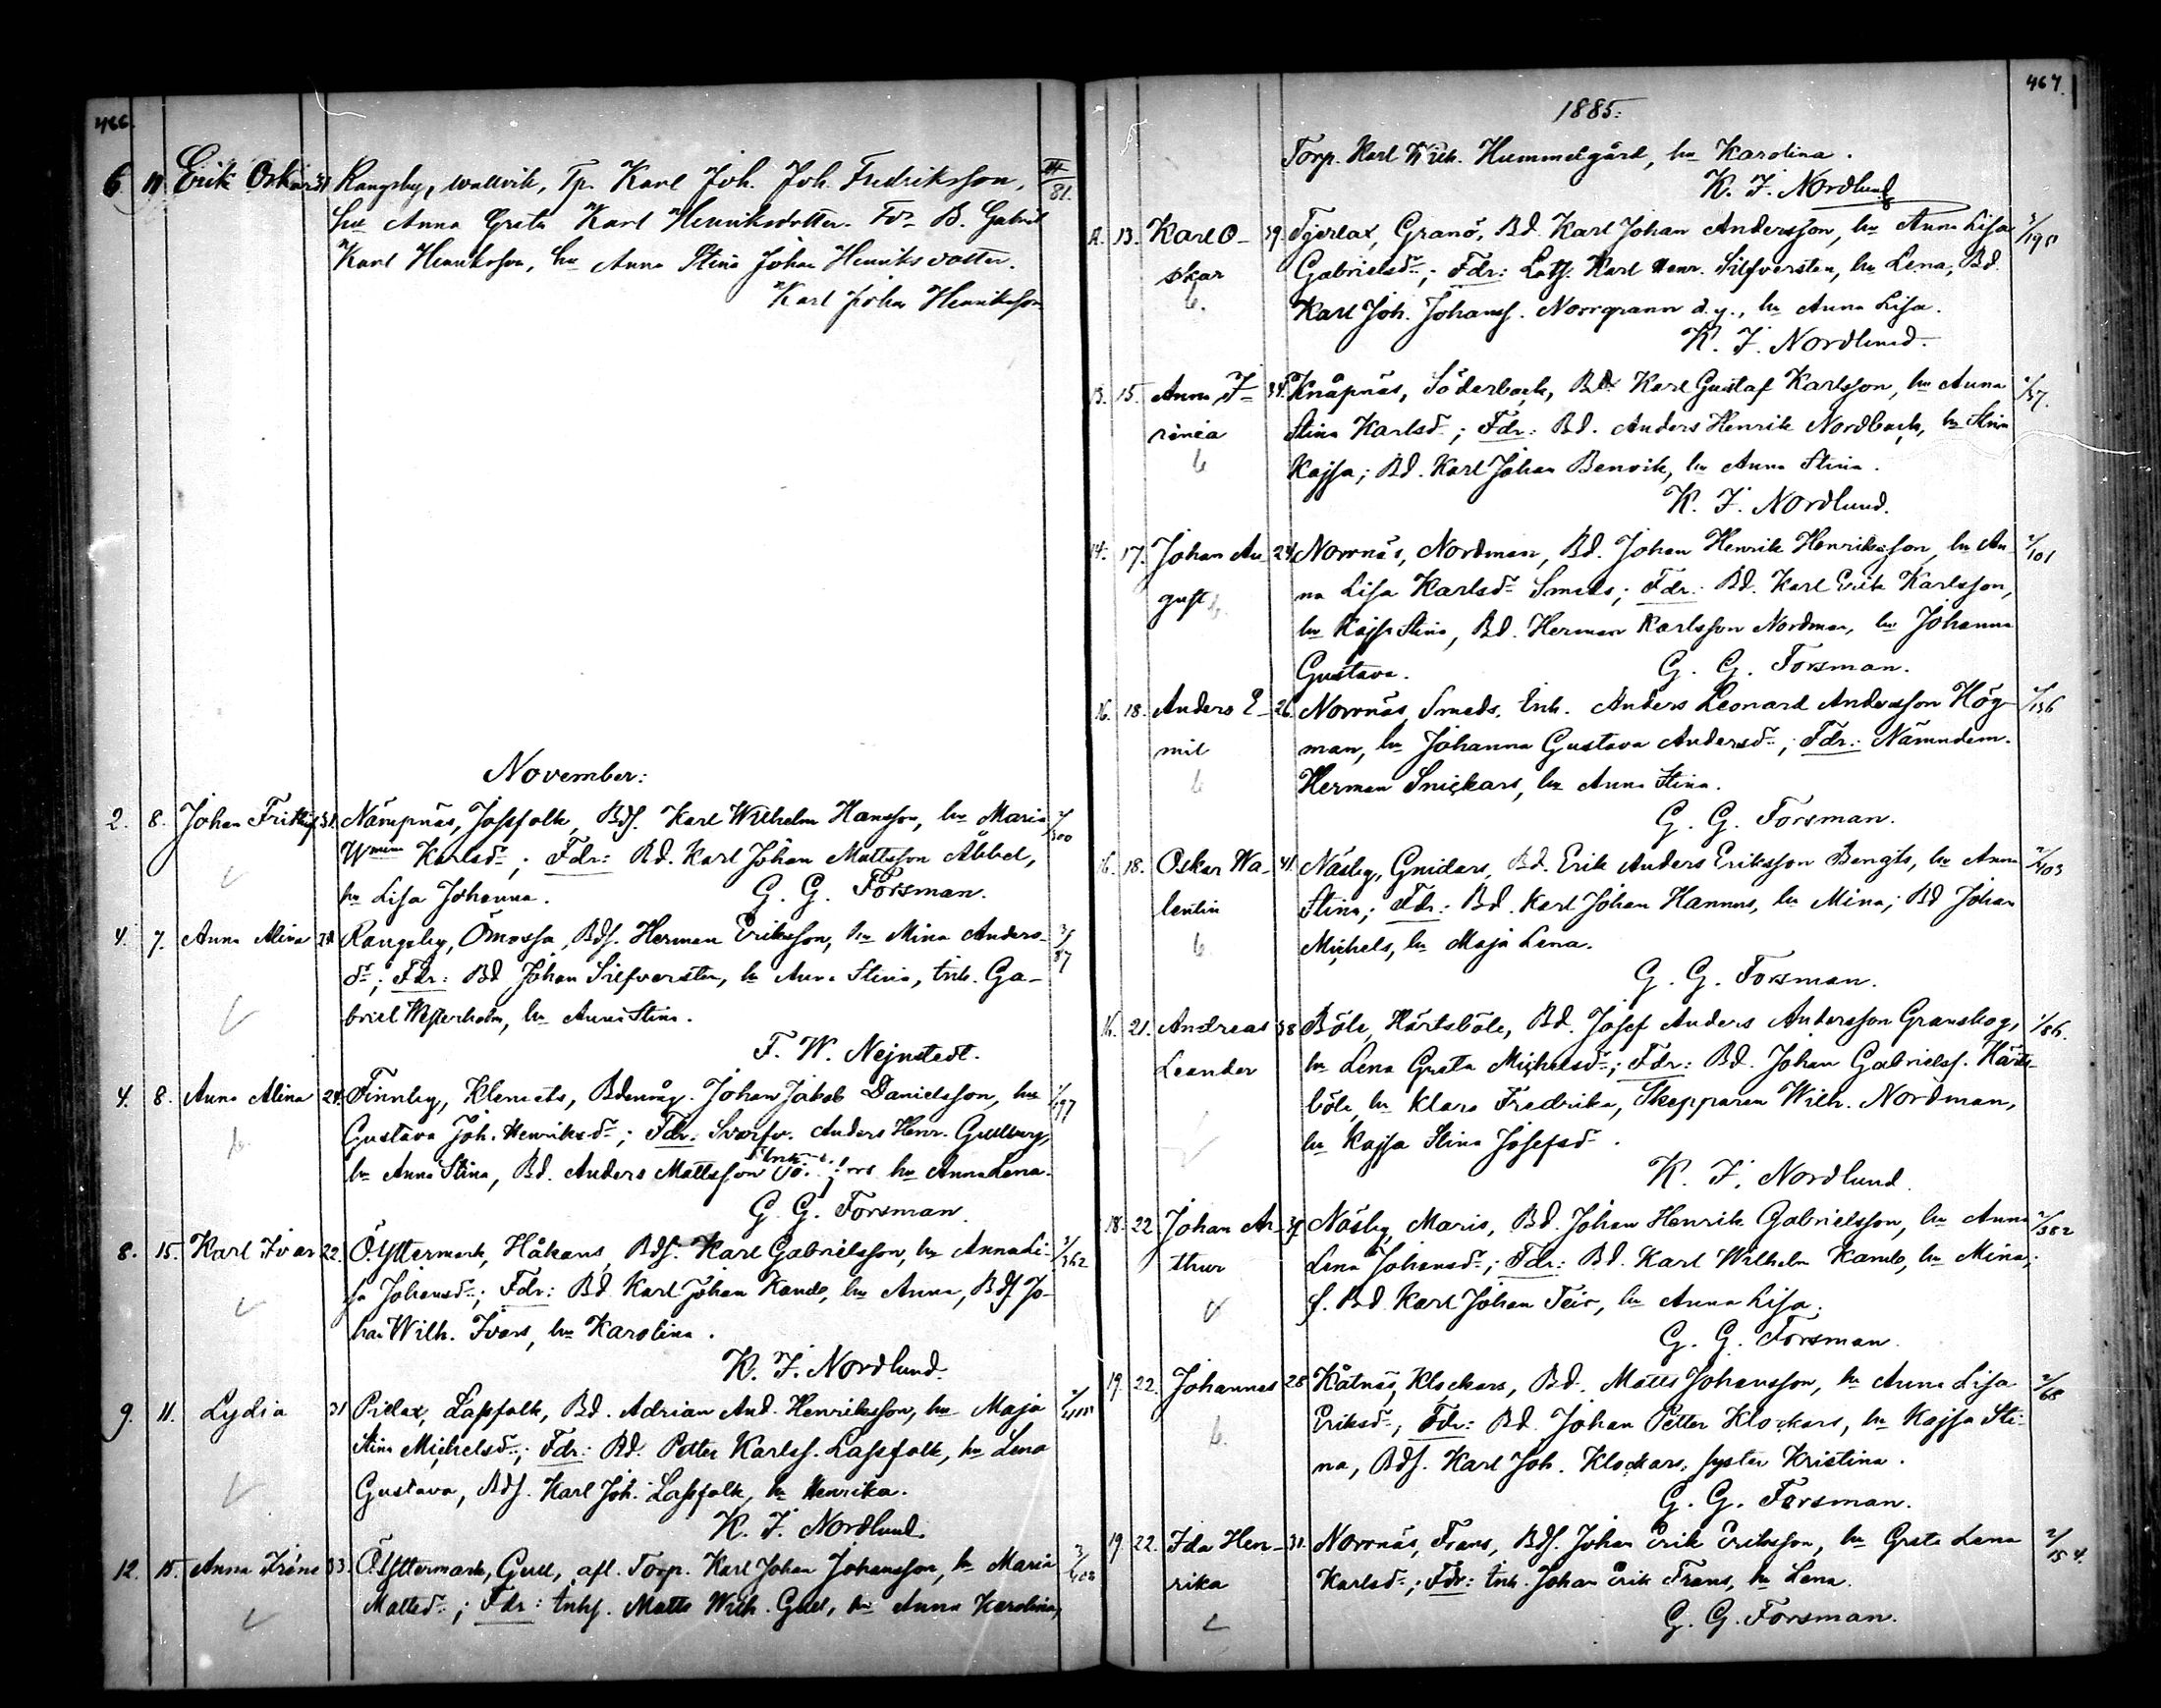 466.
6. 11. Erik Oskar 31 Rangsby, Wallvik, Tp. Karl Joh. Joh. Fredriksson, 81.
hu Anna Greta Karl Henriksdotter. Fdr B. Gabriel
Karl Henriksson, hu Anna Stina Johan Henriksdotter.
Karl Johan Henriksson
November:
2. 8. Johan Frithiof 31. Nämpnäs, Jossfolk, Bdf. Karl Wilhelm Hansson, hu Maria /300
Wmina Karlsdr; Fdr: Bd. Karl Johan Mattsson Åbbel,
hu Lisa Johanna. G. G. Forsman.
4. 7. Anna Alina Rangsby, Ömossa, Bdf. Herman Eriksson, hu Mina Anders- 3/87
dr; Fdr: Bd Johan Silfversten, hu Anna Stina, Inh. Ga-
briel Westerholm, hu Anna Stina.
F. W. Nejnstedt.
4. 8. Anna Alina 24. Finnby, Klemets, Bdemåg. Johan Jakob Danielsson, hu /197
Gustava Joh. Henriksdr; Fdr: Svarfv. Anders Henr. Gullberg,
hu Anna Stina, Bd. Anders Mattsson hu Anna Lena.
G. G. Forsman.
8. 15. Karl Ivar 22. Ö.Yttermark, Håkans, Bdf. Karl Gabrielsson, hu Anna Li- /362
sa Johansdr; Fdr: Bd Karl Johan Kands, hu Anna, Bdf Jo-
han Wilh. Ivars, hu Karolina.
K. F. Nordlund.
9. 11. Lydia 31 Pjelax, Lassfolk, Bd. Adrian And. Henriksson, hu Maja
Stina Michelsdr; Fdr: Bd. Petter Karlss. Lassfolk, hu Lena
Gustava, Bdf. Karl Joh. Lassfolk, hu Henrika.
K. F. Nordlund.
12. 15. Anna Iréne 33. Ö.Yttermark, Gull, afl. Torp. Karl Johan Johansson, hu Maria 3/408
Mattsdr; Fdr: Inhs. Matts Wilh. Gull, hu Anna Karolina,
467.
1885.
Torp. Karl Wilh. Hummelgård, hu Karolina.
K. F. Nordlund
12. 13. Karl O- 39. Tjerlax, Granö, Bd. Karl Johan Andersson, hu Anna Lisa
skar Gabrielsdr; Fdr: Lots. Karl Henr. Silfversten, hu Lena, Bd.
Karl Joh. Johanss. Norrgrann d.y., hu Anna Lisa.
K. F. Nordlund.
13. 15. Anna I- 34. Knåpnäs, Söderback, Bd. Karl Gustaf Karlsson, hu Anna /57.
rinéa Stina Karlsdr; Fdr: Bd. Anders Henrik Nordback, hu Stina
Kajsa; Bd. Karl Johan Benvik, hu Anna Stina.
K. F. Nordlund.
14. 17. Johan Au- 24. Norrnäs, Nordman, Bd. Johan Henrik Henriksson, hu An- /101
gust na Lisa Karlsdr Smeds; Fdr: Bd. Karl Erik Karlsson,
hu Kajsa Stina, Bd. Herman Karlsson Nordman, hu Johanna
Gustava. G. G. Forsman.
16. 18. Anders E- 26. Norrnäs, Smeds, Inh. Anders Leonard Andersson Hög- /136
mil man, hu Johanna Gustava Andersdr; Fdr: Nämndem.
Herman Snickars, hu Anna Stina.
G. G. Forsman.
16. 18. Oskar Wa- 41. Näsby, Gnidars, Bd. Erik Anders Eriksson Bengts, hu Anna /403
lentin Stina; Fdr: Bd. Karl Johan Hannus, hu Mina; Bd Johan
Michels, hu Maja Lena.
G. G. Forsman.
16. 21. Andreas 38 Böle, Härtsböle, Bd. Josef Anders Andersson Granskog, /86.
Leander hu Lena Greta Michelsdr; Fdr: Bd. Johan Gabrielss. Härts-
böle, hu Klara Fredrika, Skepparen Wilh. Nordman,
hu Kajsa Stina Josefsdr.
K. F. Nordlund.
18. 22 Johan Ar- Näsby, Maris, Bd. Johan Henrik Gabrielsson, hu Anna /382
thur Lena Johansdr; Fdr: Bd. Karl Wilhelm Kands, hu Mina;
f. Bd. Karl Johan Teir, hu Anna Lisa.
G. G. Forsman.
19. 22. Johannes 28 Kåtnäs, Klockars, Bd. Matts Johansson, hu Anna Lisa 2/68
Eriksdr; Fdr: Bd. Johan Petter Klockars, hu Kajsa Sti-
na, Bdf. Karl Joh. Klockars, syster Kristina.
G. G. Forsman.
19. 22. Ida Hen- 31. Norrnäs, Frans, Bdf. Johan Erik Eriksson, hu Greta Lena 2/154.
rika Karlsdr; Fdr: Inh. Johan Erik Frans, hu Lena.
G. G. Forsman.